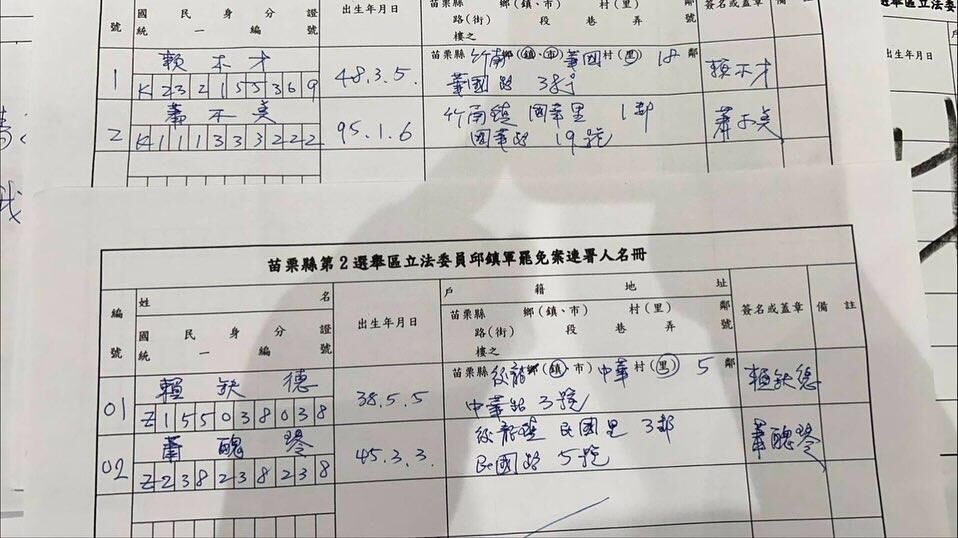 國民身分證
統一編號
號
出生年月日
苗栗縣 鄉(鎮、市) 村(里) 鄰
路(街) 段 巷 弄 號
樓之
簽名或蓋章
1
賴不才
K232155369
48.3.5.
苗栗縣 竹南 鄉(鎮、市) 華國 村(里) 18 鄰
華國路 38号
賴不才
2
蕭不美
K111333222
95.1.6
竹南鎮 國華里 1鄰
國華路 19號
蕭不美
出生年月日
我
苗栗縣第2選舉區立法委員邱鎮軍罷免案連署人名冊
編號
姓名
國民身分證
統一編號
出生年月日
戶籍地址
苗栗縣 鄉(鎮、市) 村(里) 鄰
路(街) 段 巷 弄 號
樓之
簽名或蓋章
備註
01
賴缺德
Z155038038
38.5.5
苗栗縣 後龍 鄉(鎮、市) 中華 村(里) 5 鄰
中華路 3號
賴缺德
02
蕭醜琴
Z238238238
45.3.3.
後龍鎮 民國里 3鄰
民國路 5號
蕭醜琴